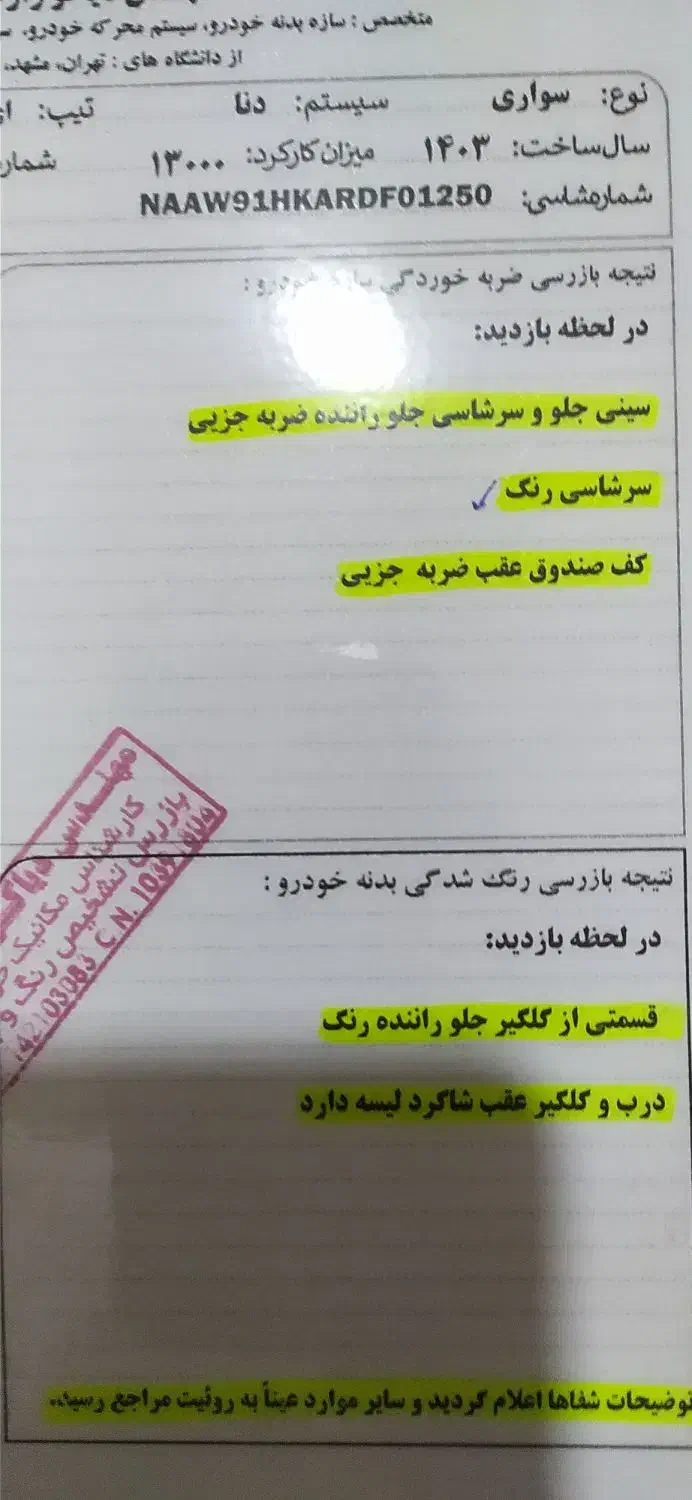 متخصص : سازه بدنه خودرو، سیستم محرکه خودرو،
از دانشگاه های : تهران، مشهد،
نوع: سواری سیستم: دنا تیپ:
سال‌ساخت: ۱۴۰۳ میزان‌کارکرد: ۱۳۰۰۰
شماره‌شاسی: NAAW91HKARDF01250
نتیجه بازرسی ضربه خوردگی خودرو :
در لحظه بازدید:
سینی جلو و سرشاسی جلو راننده ضربه جزیی
سرشاسی رنگ
کف صندوق عقب ضربه جزیی
مهندس
کارشناس مکانیک
بازرس تشخیص رنگ و
C.N.
نتیجه بازرسی رنگ شدگی بدنه خودرو :
در لحظه بازدید:
قسمتی از گلگیر جلو راننده رنگ
درب و گلگیر عقب شاگرد لیسه دارد
توضیحات شفاها اعلام گردید و سایر موارد عیناً به روئیت مراجع رسید..